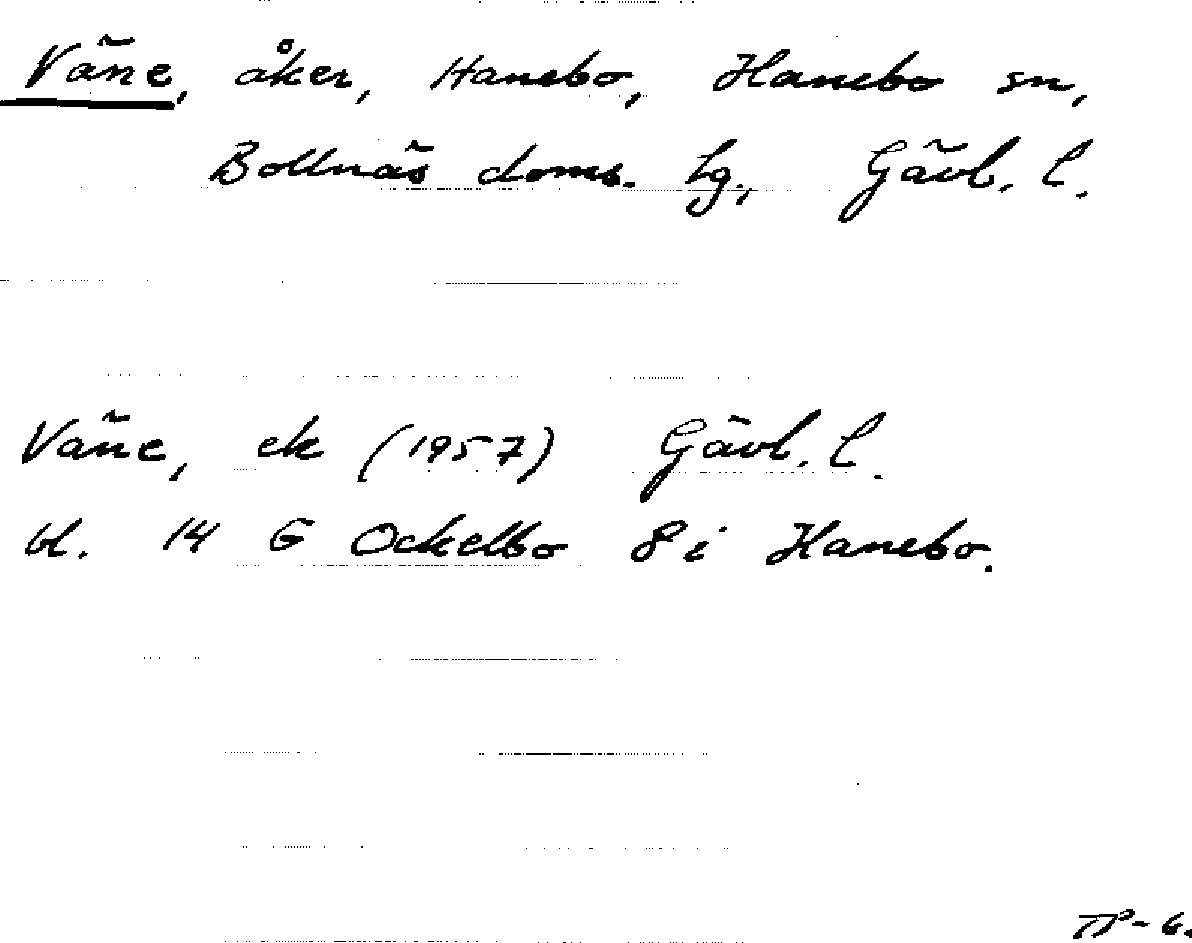 Väne, åker, Hanebo, Hanebo sn,
Bollnäs doms. Lg, Gävl. l.
Väne, ek (1957) Gävl. l.
bl. 14 G Ockelbo 8 i Hanebo.
TP-6.